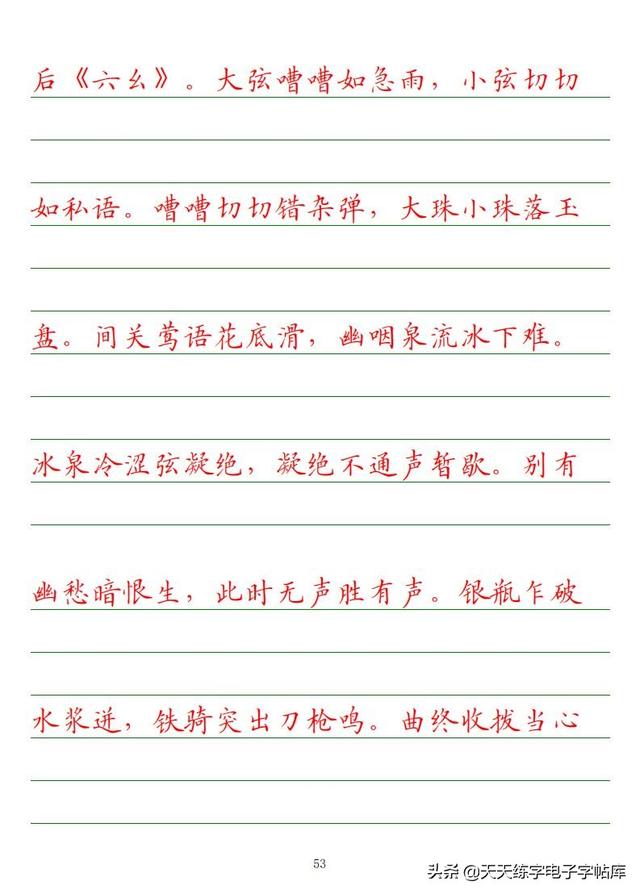 后《六幺》。大弦嘈嘈如急雨，小弦切切
如私语。嘈嘈切切错杂弹，大珠小珠落玉
盘。间关莺语花底滑，幽咽泉流冰下难。
冰泉冷涩弦凝绝，凝绝不通声暂歇。别有
幽愁暗恨生，此时无声胜有声。银瓶乍破
水浆迸，铁骑突出刀枪鸣。曲终收拨当心
53
头条@天天练字电子字帖库